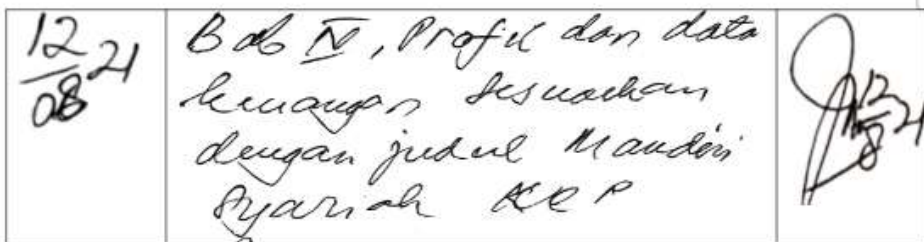 12/08 21
Bab IV, Profil dan data
keuangan sesuaikan
dengan judul Mandiri
Syariah KCP
12/8 21